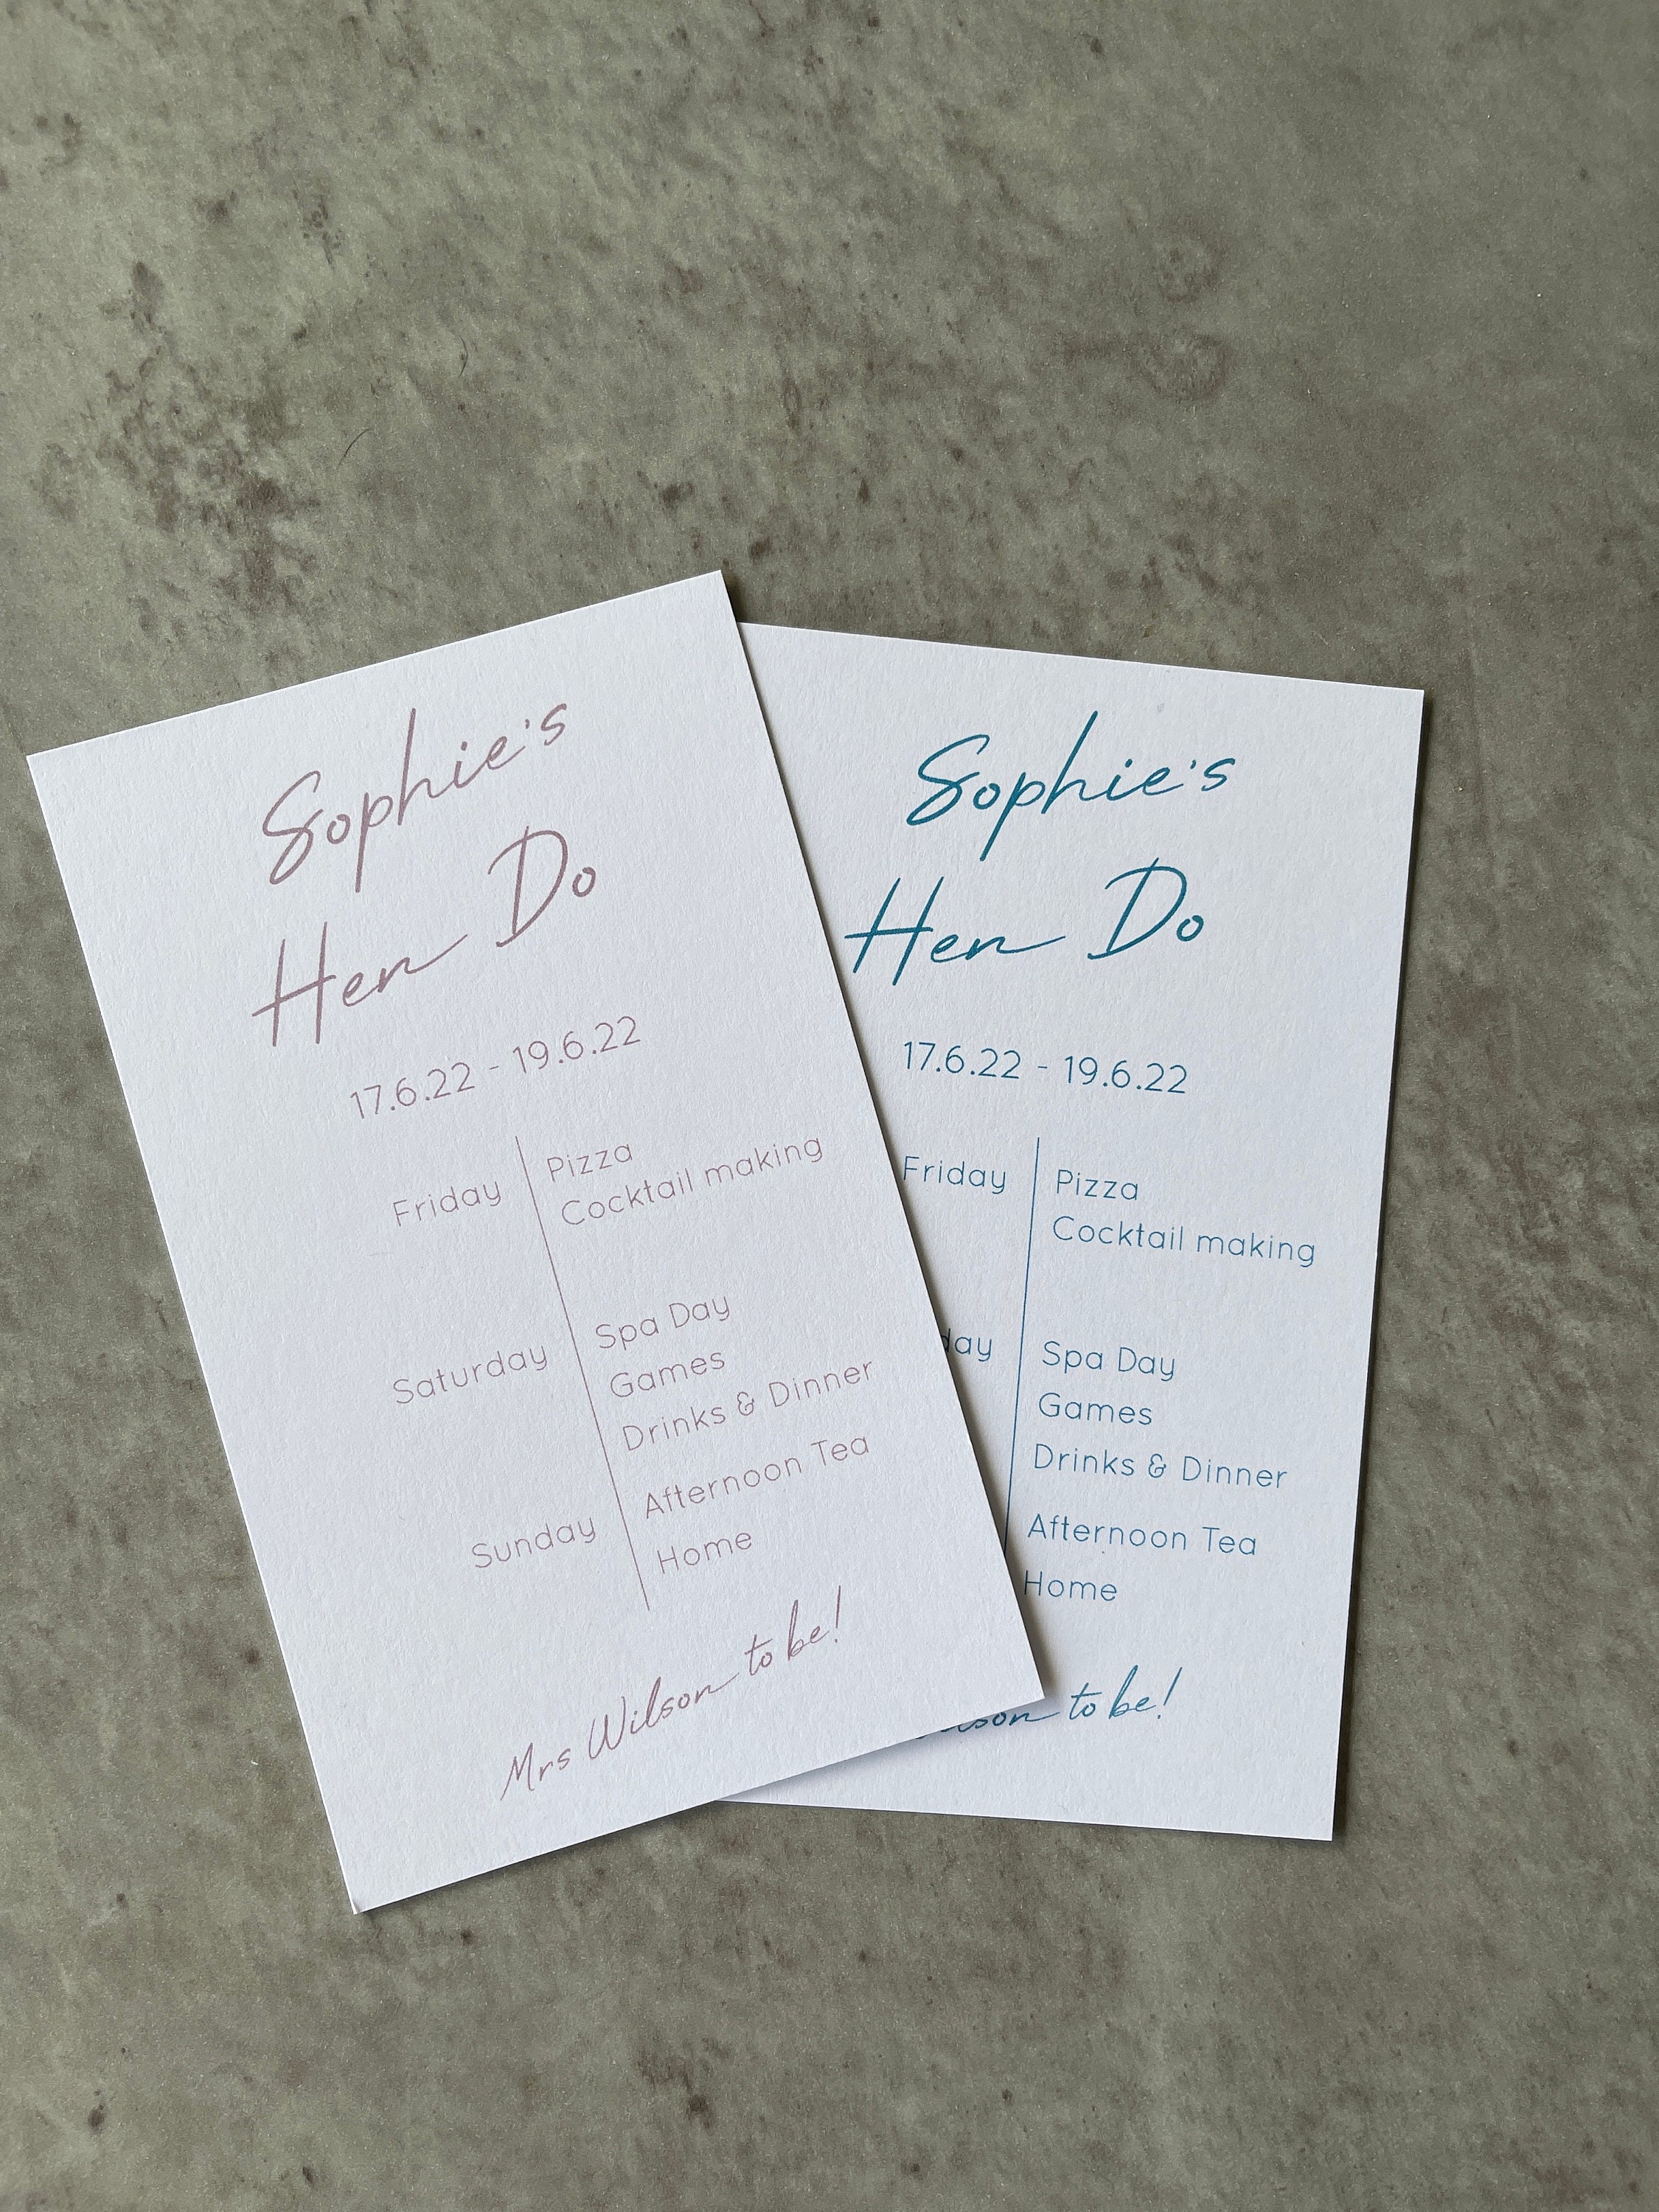 Sophie's
Hen Do
17.6.22 - 19.6.22
Friday
Pizza
Cocktail making
Saturday
Spa Day
Games
Drinks & Dinner
Sunday
Afternoon Tea
Home
Mrs Wilson to be!
Sophie's
Hen Do
17.6.22 - 19.6.22
Friday
Pizza
Cocktail making
Spa Day
Games
Drinks & Dinner
Afternoon Tea
Home
to be!